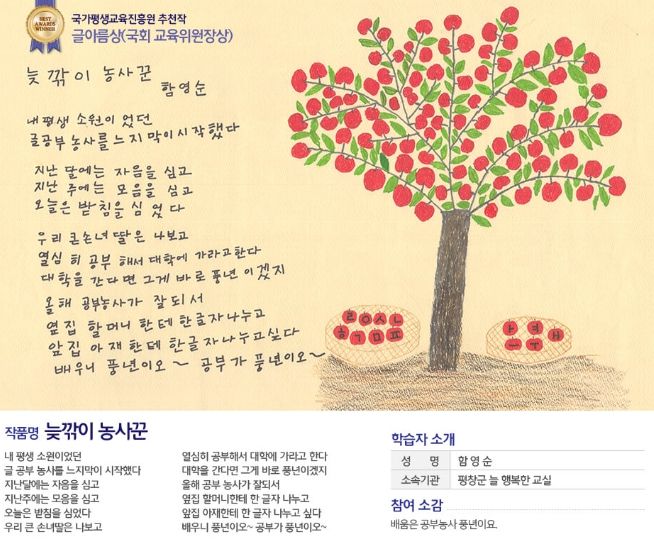 BEST
AWARDS
WINNER
국가평생교육진흥원 추천작
글아름상(국회 교육위원장상)
늦깎이 농사꾼
함영순
내 평생 소원이 었던
글공부 농사를 느지막이 시작했다
지난 달에는 자음을 심고
지난 주에는 모음을 심고
오늘은 받침을 심었다
우리 큰손녀 딸은 나보고
열심히 공부 해서 대학에 가라고한다
대학을 간다면 그게 바로 풍년이겠지
올해 공부농사가 잘되서
옆집 할머니 한테 한글자 나누고
앞집 아재 한테 한글자 나누고싶다
배우니 풍년이오~ 공부가 풍년이오~
작품명 늦깎이 농사꾼
내 평생 소원이었던
글 공부 농사를 느지막이 시작했다
지난달에는 자음을 심고
지난주에는 모음을 심고
오늘은 받침을 심었다
우리 큰 손녀딸은 나보고
열심히 공부해서 대학에 가라고 한다
대학을 간다면 그게 바로 풍년이겠지
올해 공부 농사가 잘되서
옆집 할머니한테 한 글자 나누고
앞집 아재한테 한 글자 나누고 싶다
배우니 풍년이오~ 공부가 풍년이오~
학습자 소개
성 명 함 영 순
소속기관 평창군 늘 행복한 교실
참여 소감
배움은 공부농사 풍년이요.